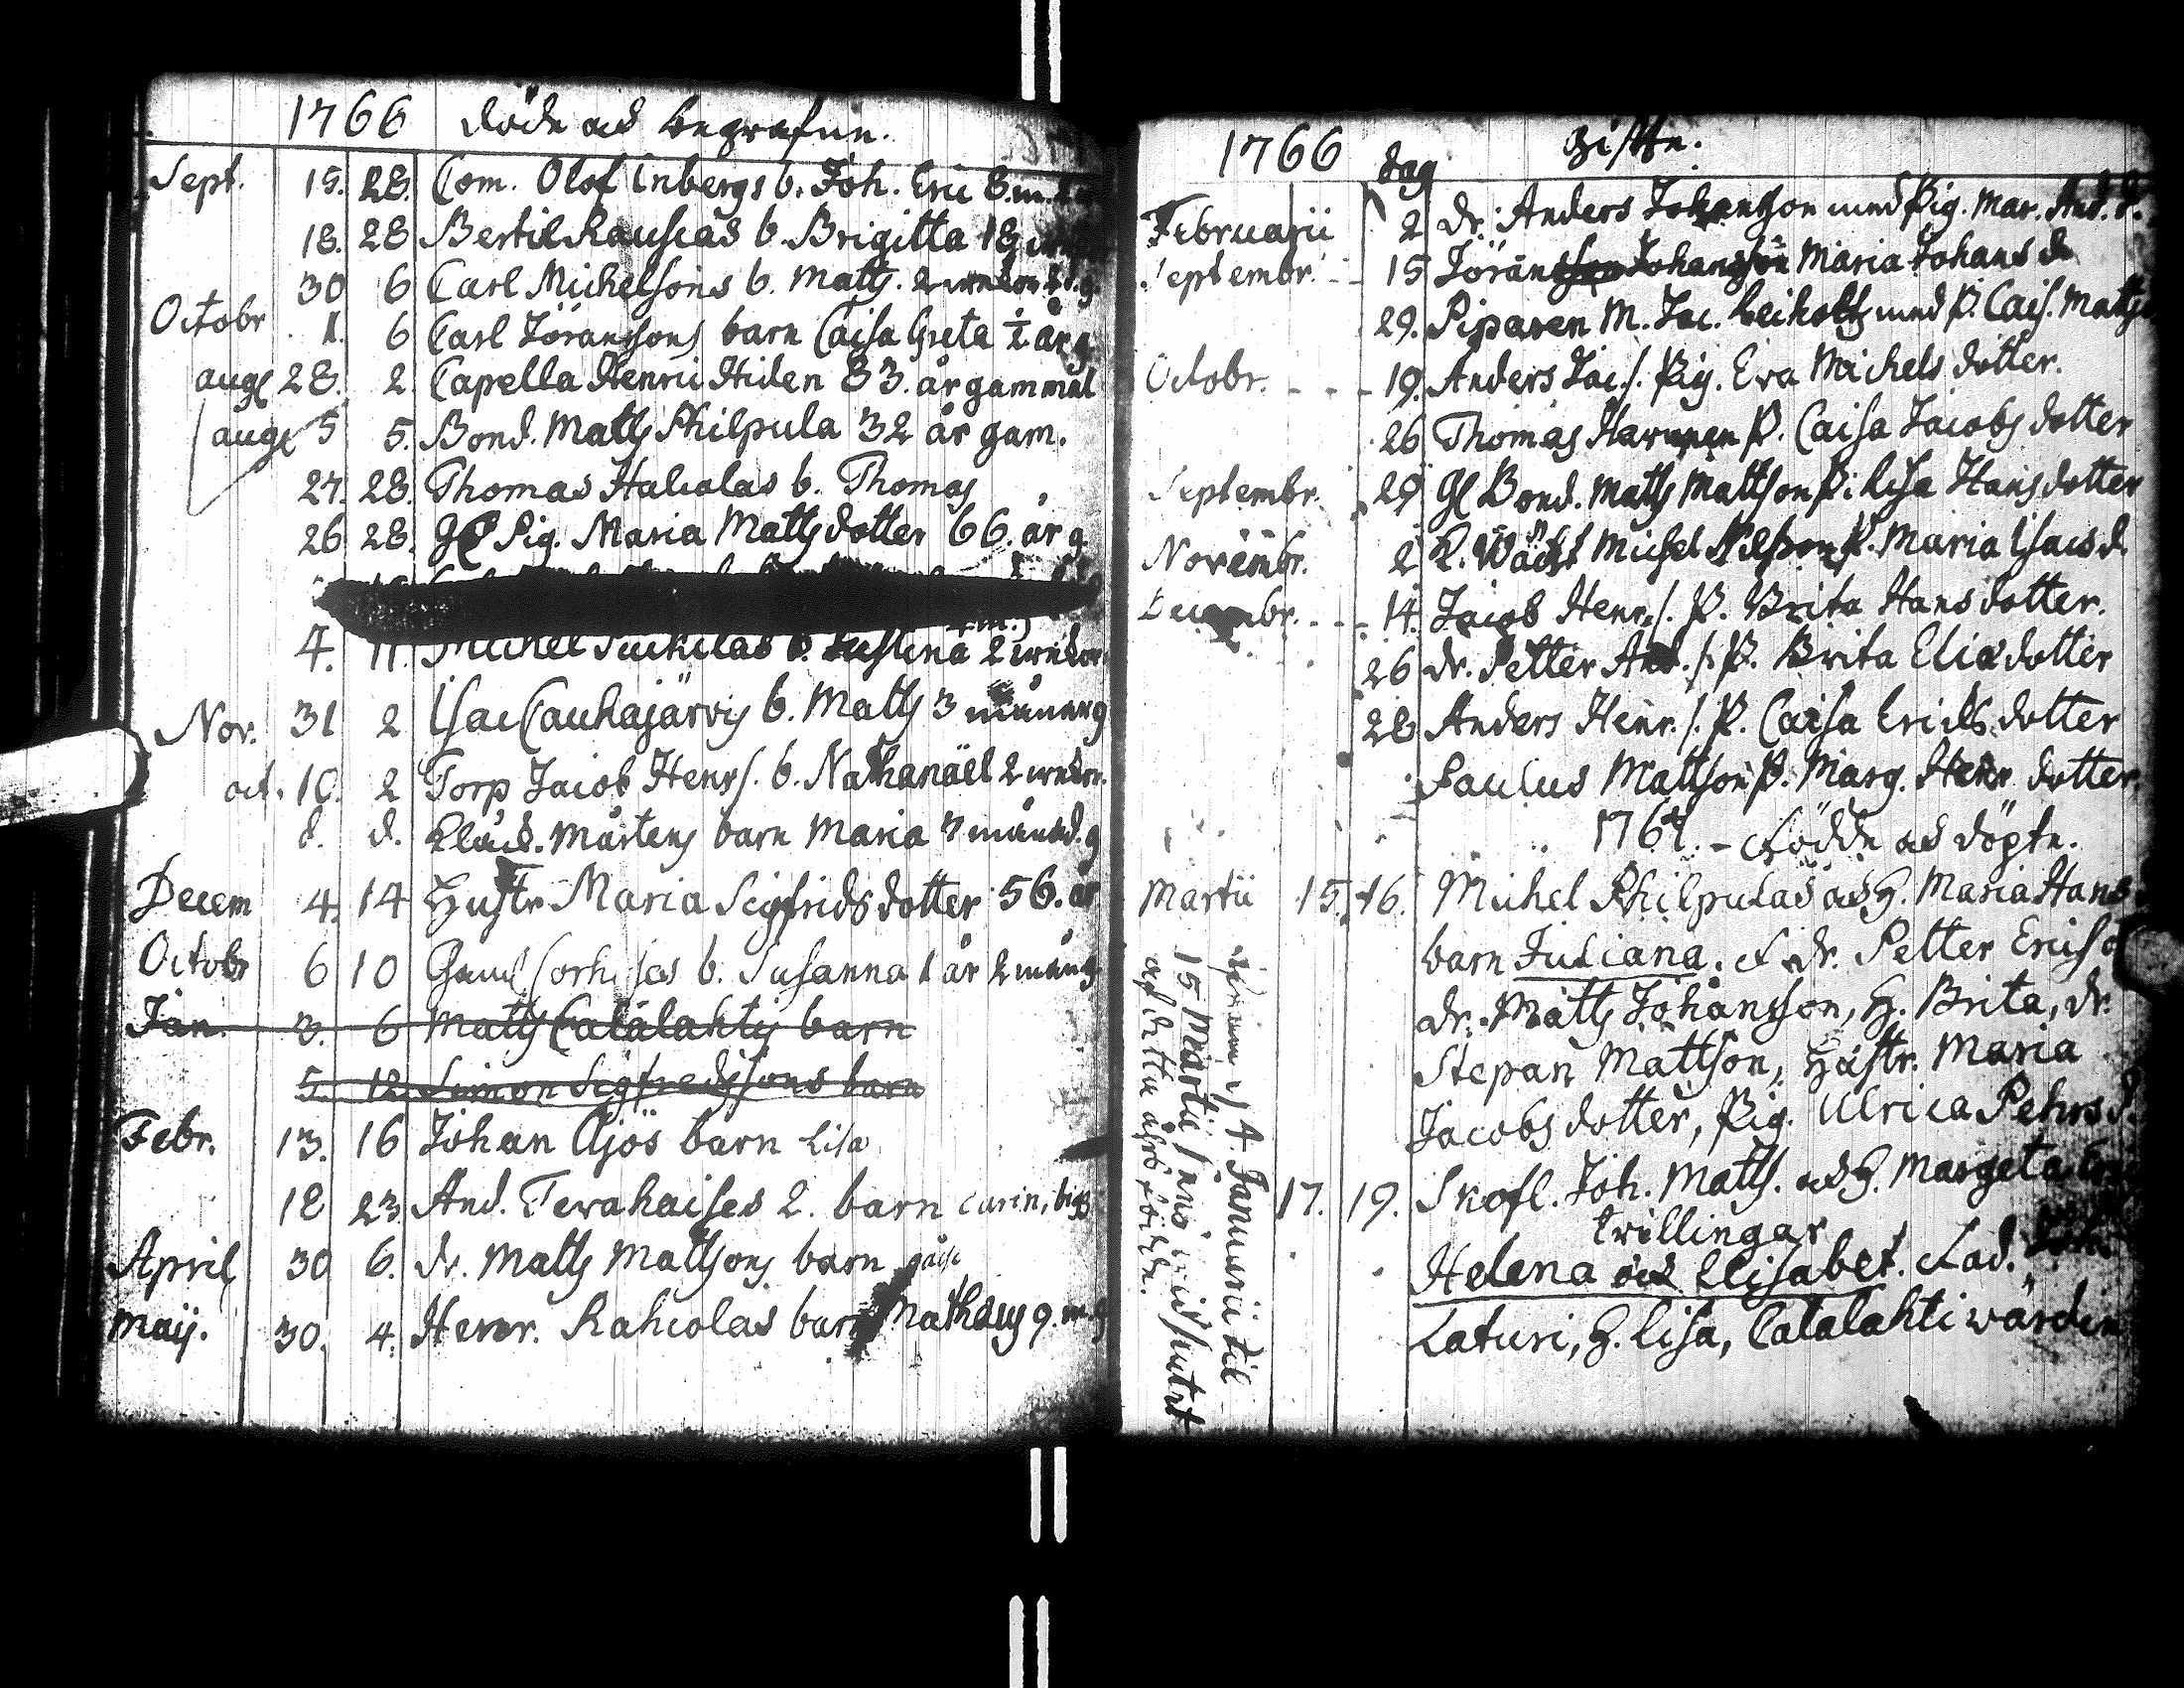 1766 döde och begrafne.
Sept. 15. 28. Com. Olof Enbergs b. Joh. Eric 8. m.
18. 28 Bertil Rauscas b. Brigitta 18
30 6 Carl Michelsons b. Matts. 2
Octobr 1. 6 Carl Jöranssons barn Caisa Greta ½ år g
aug 28. 2 Capella Henric Hiden 83. år gammal
aug 5 5. Bond. Matts Philpula 32 år gam.
27. 28. Thomas Halcolas b. Thomas
26 28. Gl Pig. Maria Matts dotter 66. år g
4. 11. Michel b. Justina 2
Nov. 31 2 Isac Cauhajärvis b. Matts 3 månan g
oct. 10. 2 Torp Jacob Henrs. b. Nathanäel 2
d. d. Mårtens barn Maria 3 månad. g
Decem 4. 14 Hustr Maria Sigfrids dotter 56. år
Octobr 6 10 b. Susanna 1 år 2 mån g
Jan. 3. 6 Matts Catalahtis barn
5. 12. Simon Sigfredssons barn
Febr. 13. 16 Johan Ojos barn Lisa
18 23 And. Tervahaises 2. barn Carin,
April 30 6. dr. Matts Matssons barn
Maij. 30. 4. Henr. Rahcolas barn Mathäus 9. m g
1766 dag Gifte.
Februarii 2 Dr. Anders Johansson med Pig. Mar. And. d.
Septembr. 15 Jöransson Johansson Maria Johans d
29. Piparen M. Jac. Leiholtz med P. Cais. Matts
Octobr. 19. Anders Jac. s. Pig. Eva Michels dotter.
26 Thomas Harunen P. Caisa Jacobs dotter
Septembr. 29 Gl Bond. Matts Mattson P. Lisa Hans dotter
Novembr. 2 Michel Nilsson P. Maria Isacs d.
Decembr. 14. Jacob Henr. s. P. Brita Hans dotter.
26 dr. Petter And. s. P. Brita Elias dotter
28 Anders Henr. s. P. Caisa Erichs dotter
Paulus Mattson P. Marg. Henr dotter
1767. - Födde och döpte.
Martii 15. 16. Michel Philpulas och H. Maria Hans
barn Juliana. F. dr. Petter Erics
dr. Matts Johansson, H. Brita, dr.
Stepan Mattson, Hustr. Maria
Jacobs dotter, Pig. Ulrica Pehrs d.
17. 19. Skofl. Joh. Matts. och H. Margeta
twillingar
Helena och Elisabet. Fad.
Laturi, H. Lisa, Catalahti wärden
4 Januarii til
15 Martii
af detta året